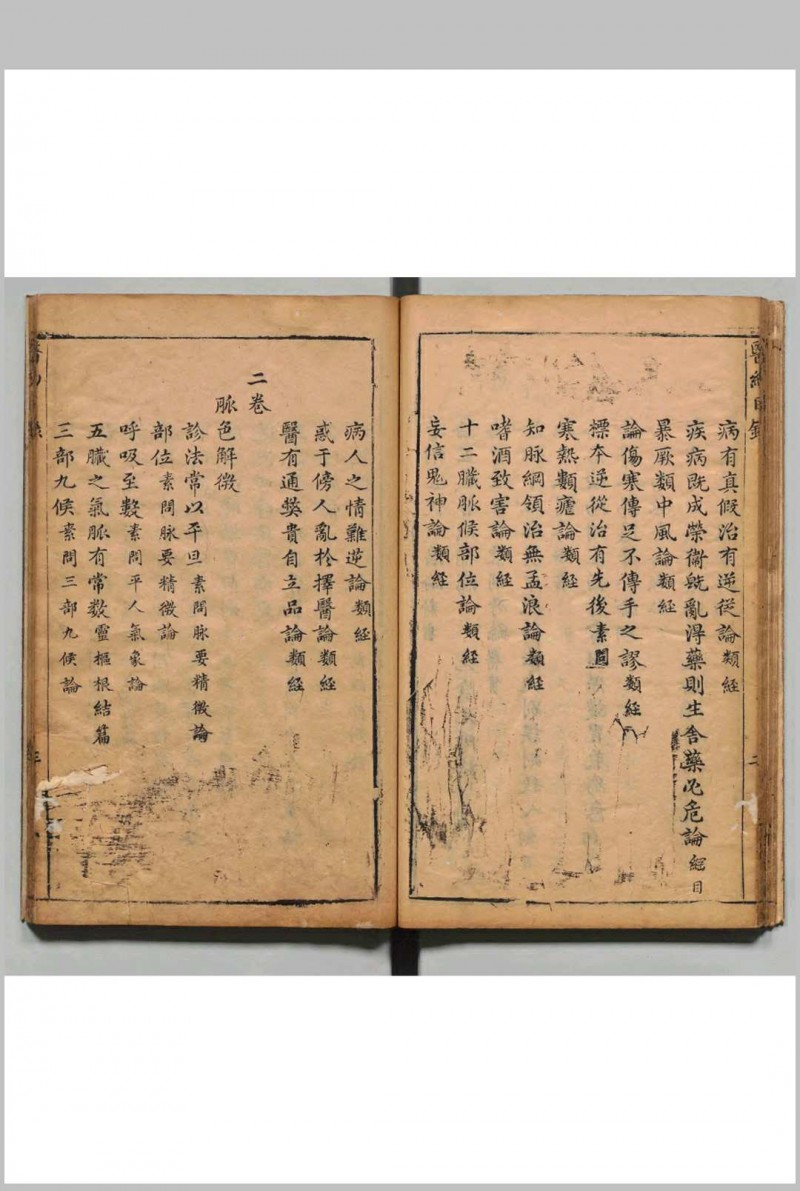 病有真假治有逆從論類經
疾病既成榮衛既亂淂藥則生舍藥必危論綱目
暴厥類中風論類經
論傷寒傳足不傳手之謬類經
標本逆從治有先後素問
寒熱類瘧論類經
知脉綱領治無孟浪論類經
嗜酒致害論類經
十二臟脉候部位論類經
妄信鬼神論類經
病人之情難逆論類經
惑于傍人亂於擇醫論類經
醫有通獘貴自立品論類經
二卷
脈色解微
診法常以平旦素問脉要精微論
部位素問脉要精微論
呼吸至數素問平人氣象論
五臟之氣脈有常数靈樞根結篇
三部九候素問三部九候論